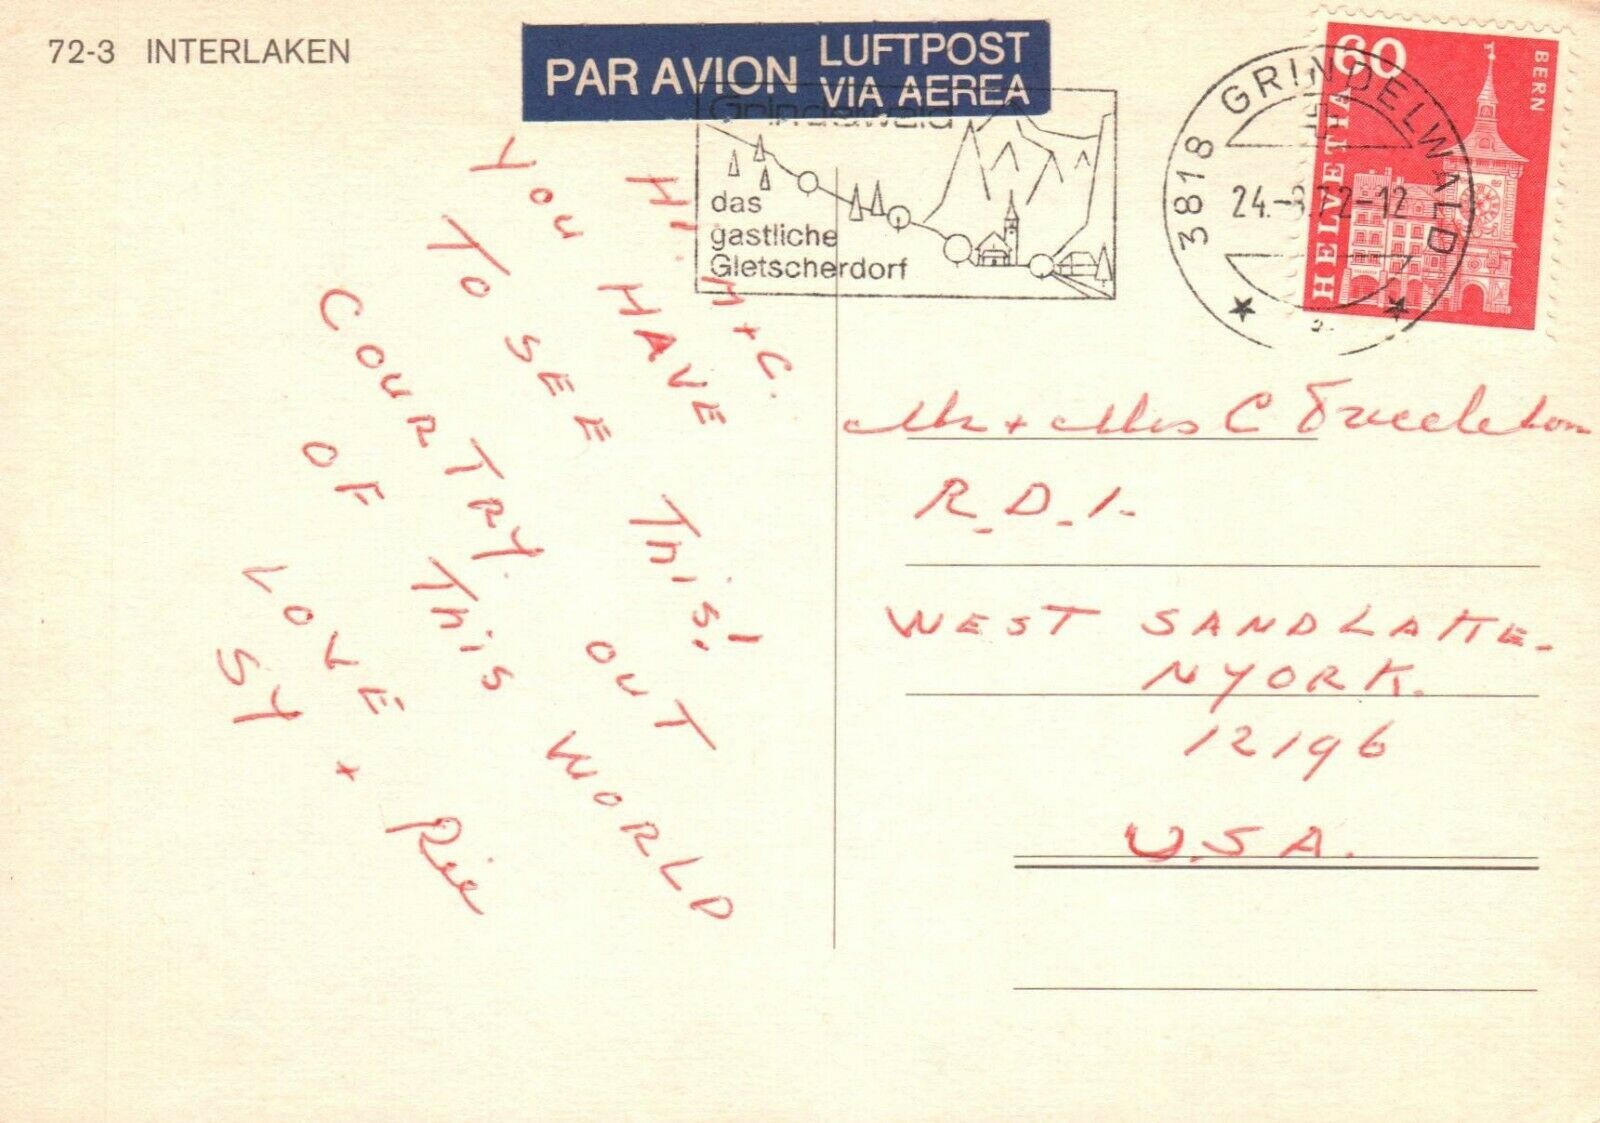 72-3 INTERLAKEN
PAR AVION
LUFTPOST
VIA AEREA
Grindelwald
das
gastliche
Gletscherdorf
3818 GRINDELWALD
24.-8.72-12
60
HELVETIA
BERN
Hi M + C.
YOU HAVE
TO SEE THiS!
COURTRY. OUT
OF THiS WORLD
LOVE
SY + Rie
Mr + Mrs C
R.D.1.
WEST SANDLAKE.
NYORK.
12196
U.S.A.